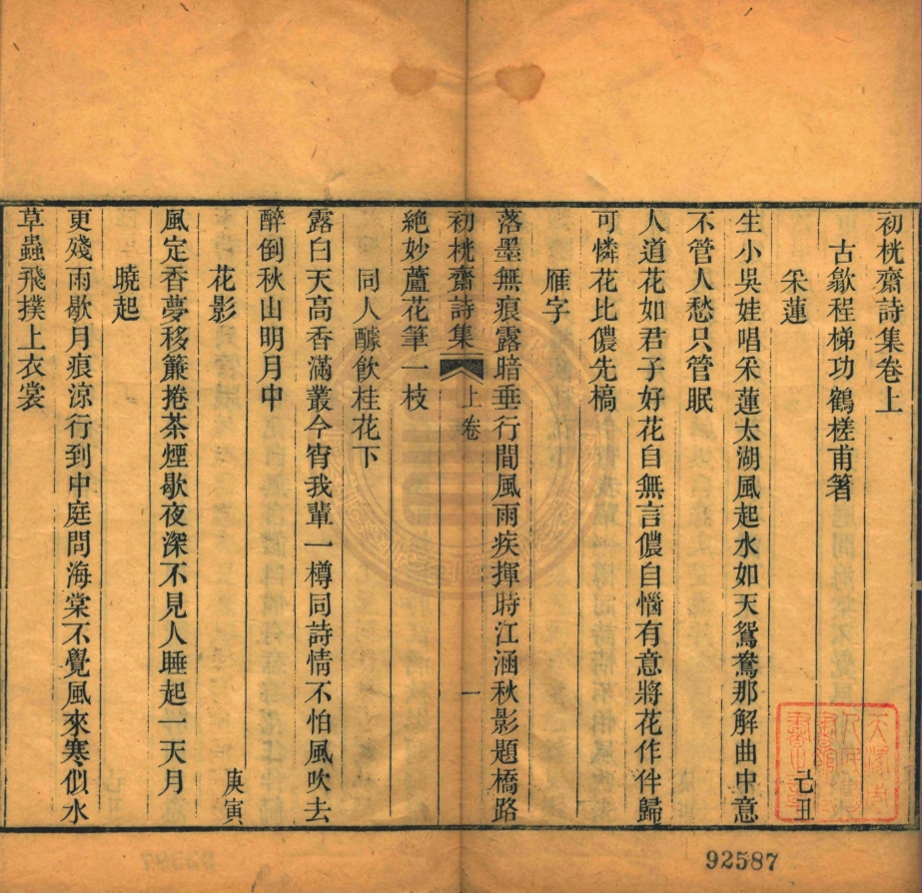 初桄齋詩集卷上
古歙程梯功鶴槎甫著
采蓮 己丑
生小吳娃唱采蓮太湖風起水如天鴛鴦那解曲中意
不管人愁只管眠
人道花如君子好花自無言儂自惱有意將花作伴歸
可憐花比儂先槁
雁字
落墨無痕露暗垂行間風雨疾揮時江涵秋影題橋路
初桄齋詩集 上卷 一
絕妙蘆花筆一枝
同人醵飲桂花下
露白天高香滿叢今宵我輩一樽同詩情不怕風吹去
醉倒秋山明月中
花影 庚寅
風定香夢移簾捲茶煙歇夜深不見人睡起一天月
曉起
更殘雨歇月痕涼行到中庭問海棠不覺風來寒似水
草蟲飛撲上衣裳
92587